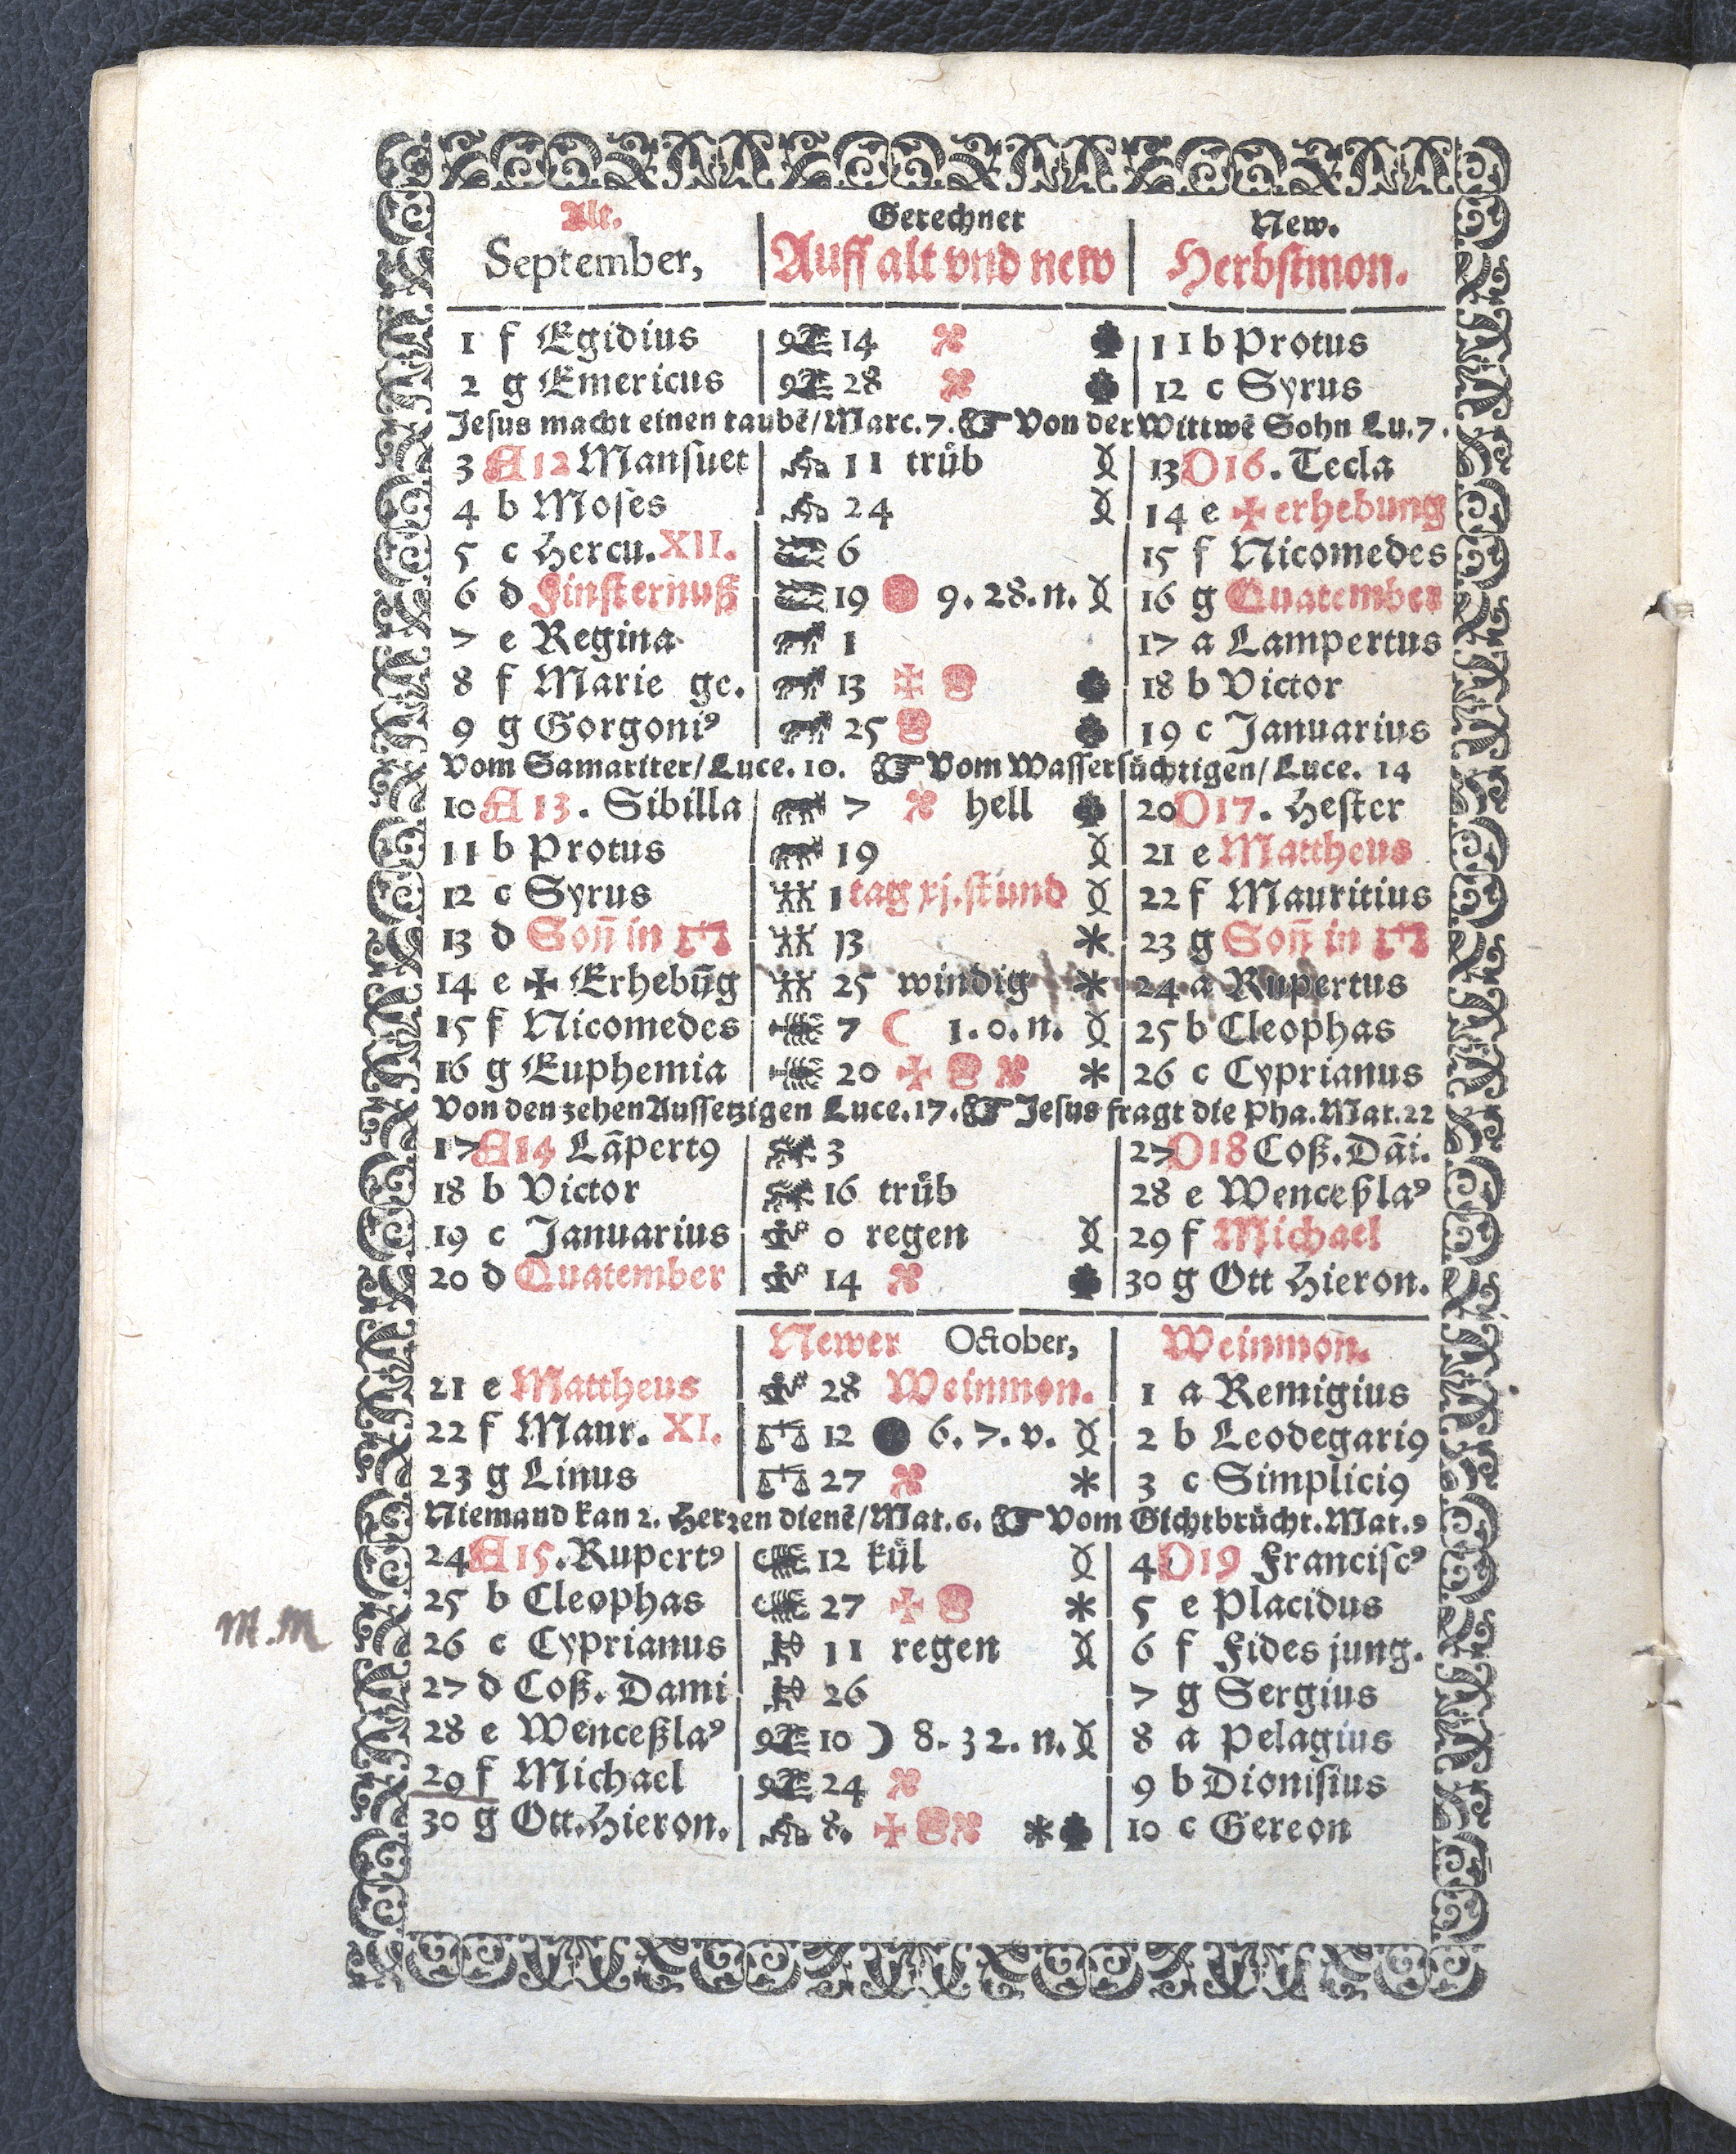 Alt. Gerechnet New.
September, Auff alt vnd new Herbstmon.
1 f Egidius 14 11 b Protus
2 g Emericus 28 12 c Syrus
Jesus macht einen taubē/Marc.7. Von der Wittwē Sohn Lu.7.
3 A 12 Mansuet 11 trüb 13 D 16. Tecla
4 b Moses 24 14 e ✠ erhebung
5 c Hercu. XII. 6 15 f Nicomedes
6 d Finsternuß 19 9. 28. n. 16 g Quatember
7 e Regina 1 17 a Lampertus
8 f Marie ge. 13 ✠ 18 b Victor
9 g Gorgoniꝰ 25 19 c Januarius
Vom Samariter/Luce. 10. Vom Wassersüchtigen/Luce. 14
10 A 13. Sibilla 7 hell 20 D 17. Hester
11 b Protus 19 21 e Mattheus
12 c Syrus 1 tag xj. stund 22 f Mauritius
13 d Soñ in ♎ 13 23 g Soñ in ♎
14 e ✠ Erhebūg 25 windig 24 a Rupertus
15 f Nicomedes 7 ☾ 1. 0. n. 25 b Cleophas
16 g Euphemia 20 ✠ 26 c Cyprianus
Von den zehen Aussetzigen Luce. 17. Jesus fragt die Pha. Mat. 22
17 A 14 Lāpertꝰ 3 27 D 18 Coß. Dāi.
18 b Victor 16 trüb 28 e Wenceßlaꝰ
19 c Januarius 0 regen 29 f Michael
20 d Quatember 14 30 g Ott Hieron.
Newer October, Weinmon.
21 e Mattheus 28 Weinmon. 1 a Remigius
22 f Maur. XI. 12 6. 7. v. 2 b Leodegariꝰ
23 g Linus 27 3 c Simpliciꝰ
Niemand kan 2. Herzen dienē/Mat. 6. Vom Gichtbrücht. Mat. 9
24 A 15. Rupertꝰ 12 kül 4 D 19 Franciscꝰ
25 b Cleophas 27 ✠ 5 e Placidus
M.M 26 c Cyprianus 11 regen 6 f Fides jung.
27 d Coß. Dami 26 7 g Sergius
28 e Wenceßlaꝰ 10 ☽ 8. 32. n. 8 a Pelagius
29 f Michael 24 9 b Dionisius
30 g Ott. Hieron. 8. ✠ 10 c Gereon